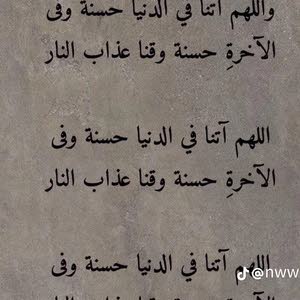 واللهم آتنا في الدنيا حسنة وفى
الآخرةِ حسنة وقنا عذاب النار
اللهم آتنا في الدنيا حسنة وفى
الآخرةِ حسنة وقنا عذاب النار
اللهم آتنا في الدنيا حسنة وفى
@nww